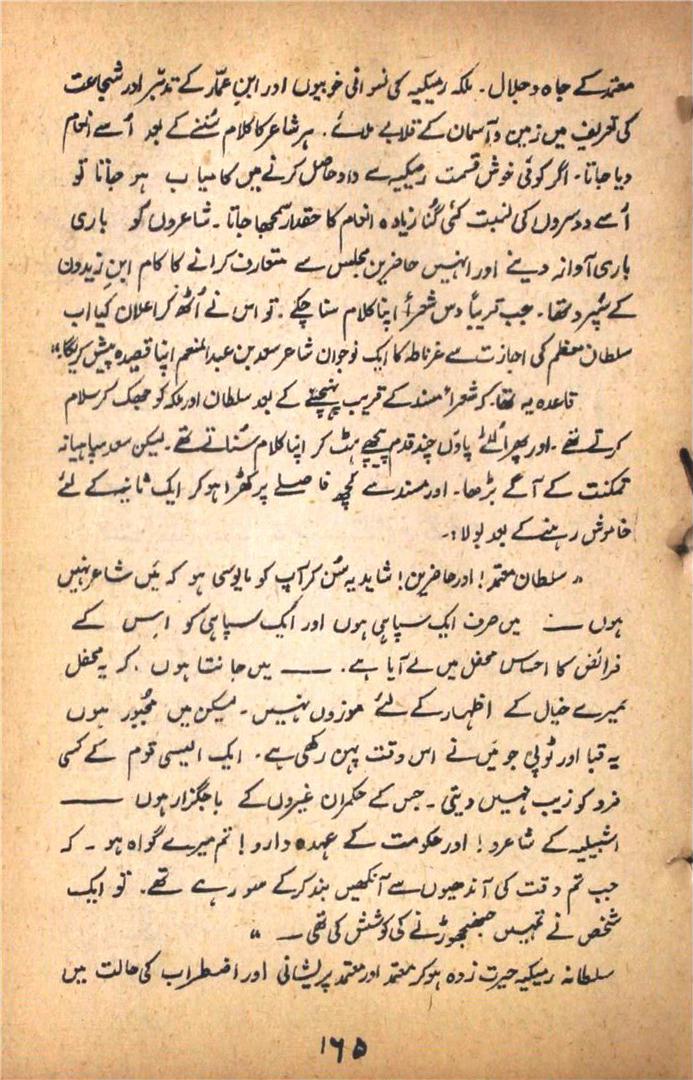 معتمد کے جاہ و جلال۔ بلکہ رمیکیہ کی نسوانی خوبیوں اور ابنِ عمّار کے تدبّر اور شجاعت
کی تعریف میں زمین و آسمان کے قلابے ملائے۔ ہر شاعر کا کلام سُننے کے بعد اُسے انعام
دیا جاتا۔ اگر کوئی خوش قسمت رمیکیہ سے داد حاصل کرنے میں کامیاب ہو جاتا تو
اُسے دوسروں کی نسبت کئی گُنا زیادہ انعام کا حقدار سمجھا جاتا۔ شاعروں کو باری
باری آواز دینے اور انہیں حاضرینِ مجلس سے متعارف کرانے کا کام ابنِ زیدون
کے سُپرد تھا۔ جب قریباً دس شعرأ اپنا کلام سنا چکے۔ تو اس نے اُٹھ کر اعلان کیا اب
سلطان معظم کی اجازت سے غرناطہ کا ایک نوجوان شاعر سعد بن عبد المنعم اپنا قصیدہ پیش کریگا"
قاعدہ یہ تھا۔ کہ شعرأ مسند کے قریب پہنچنے کے بعد سلطان اور ملکہ کو جھک کر سلام
کرتے تھے۔ اور پھر اُلٹے پاؤں چند قدم پیچھے ہٹ کر اپنا کلام سُناتے تھے۔ لیکن سعد سپاہیانہ
تمکنت کے آگے بڑھا۔ اور مسند سے کچھ فاصلے پر کھڑا ہو کر ایک ثانیہ کے لئے
خاموش رہنے کے بعد بولا:۔
" سلطان معتمد! اور حاضرین! شاید یہ سُن کر آپ کو مایوسی ہو کہ مَیں شاعر نہیں
ہوں ــــ میں صرف ایک سپاہی ہوں اور ایک سپاہی کو اس کے
فرائض کا احساس محفل میں لے آیا ہے۔ ــــ میں جانتا ہوں۔ کہ یہ محفل
میرے خیال کے اظہار کے لئے موزوں نہیں۔ لیکن میں مجبُور ہوں
یہ قبا اور ٹوپی جو مَیں نے اس وقت پہن رکھی ہے۔ ایک ایسی قوم کے کسی
فرد کو زیب نہیں دیتی۔ جس کے حکمران غیروں کے باجگزار ہوں ــــ
اشبیلیہ کے شاعرو! اور حکومت کے عہدہ دارو! تم میرے گواہ ہو۔ کہ
جب تم وقت کی آندھیوں سے آنکھیں بند کرکے سو رہے تھے۔ تو ایک
شخص نے تمہیں جھنجوڑنے کی کوشش کی تھی ــ "
سلطانہ رمیکیہ حیرت زدہ ہو کر معتمد اور معتمد پریشانی اور اضطراب کی حالت میں
۱۶۵